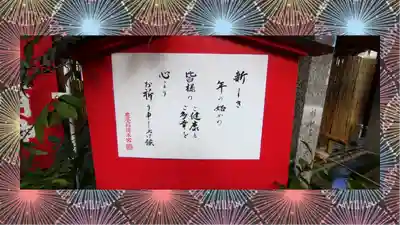 新しき
年の始めの
皆様のご健康と
ご多幸を
心より
お祈り申し上げ候